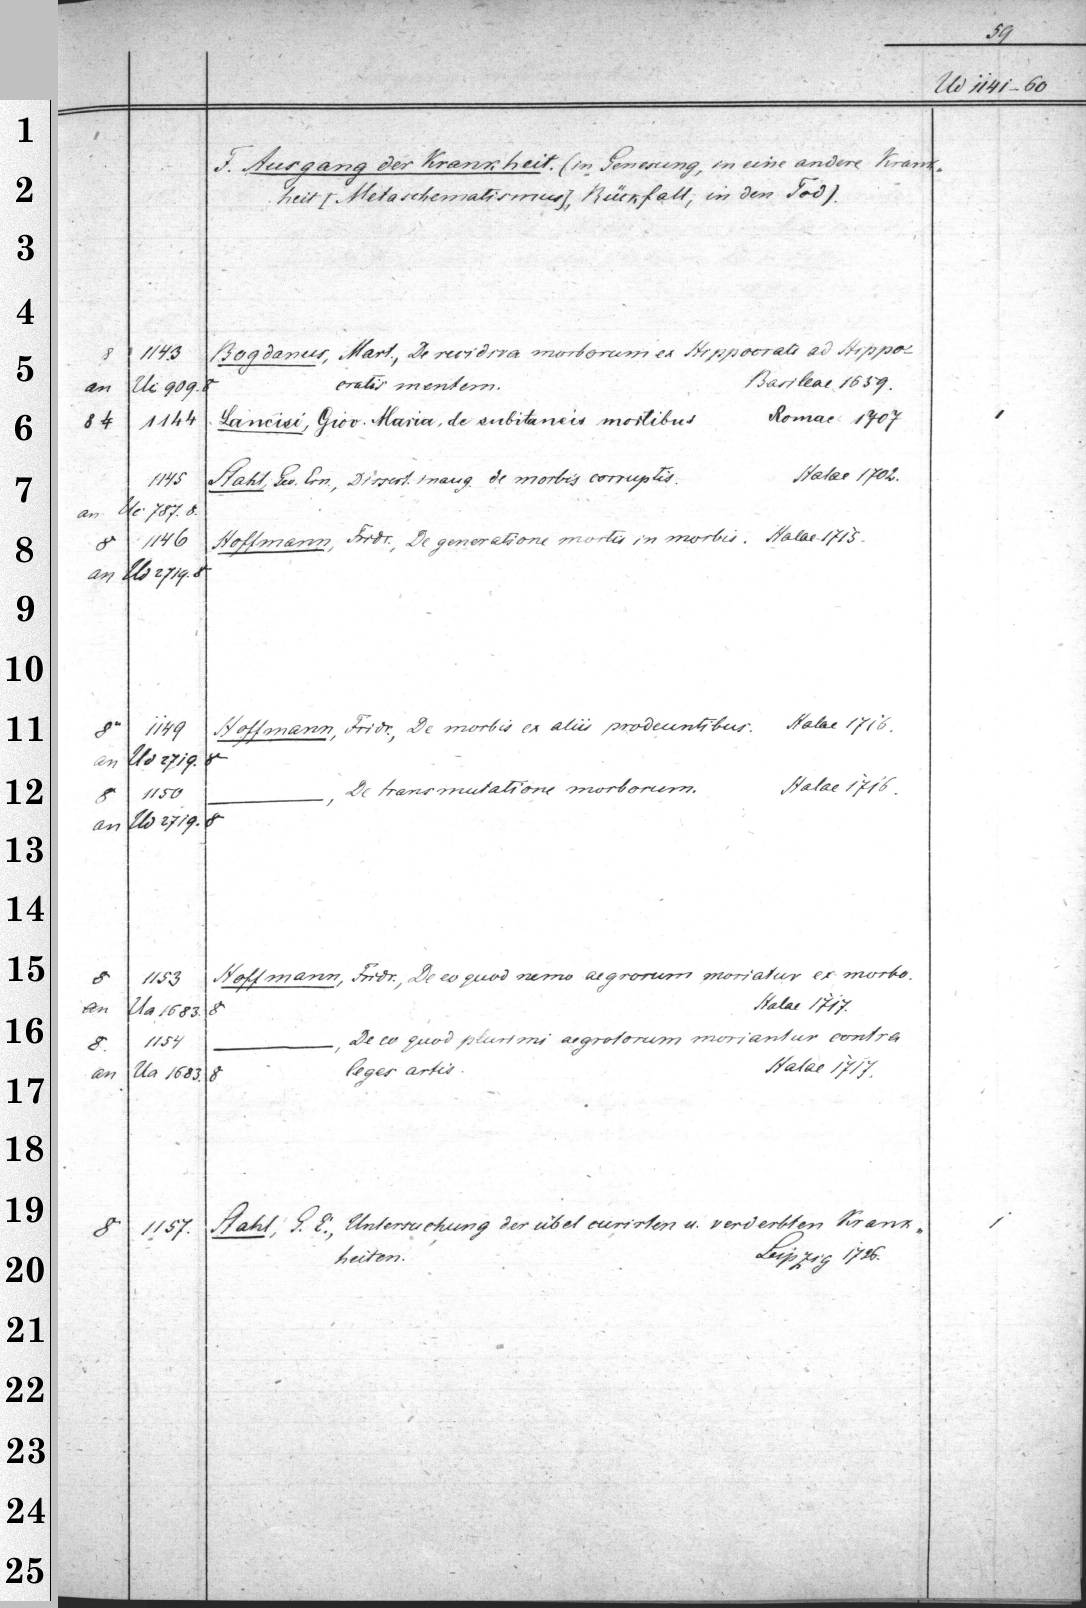 59
Ud 1141-60
F. Ausgang der Krankheit. (in Genesung, in eine andere Krank-
heit [Metaschematismus], Rückfall, in den Tod).
8 1143 Bogdanus, Mart., De recidiva morborum ex Hippocratis ad Hippo-
an Ue 909. 8 cratis mentem. Basileae 1659.
8 4 1144 Lancisi, Giov. Maria, de subitaneis mortibus Romae 1707 1
1145 Stahl, Geo. Ern., Dissert. inaug. de morbis corruptis. Halae 1702.
an Ue 787. 8.
8 1146 Hoffmann, Fridr., De generatione mortis in morbis. Halae 1715.
an Ud 2719. 8
8° 1149 Hoffmann, Fridr., De morbis ex aliis prodeuntibus. Halae 1716.
an Ud 2719. 8
8 1150 ———, De transmutatione morborum. Halae 1716.
an Ud 2719. 8
8 1153 Hoffmann, Fridr., De eo quod nemo aegrorum moriatur ex morbo.
an Ua 1683. 8 Halae 1717.
8. 1154 ———, De eo quod plurimi aegrotorum moriantur contra
an Ua 1683. 8 leges artis. Halae 1717.
8 1157. Stahl, G. E., Untersuchung der übel curirten u. verderbten Krank- 1
heiten. Leipzig 1726.
1
2
3
4
5
6
7
8
9
10
11
12
13
14
15
16
17
18
19
20
21
22
23
24
25